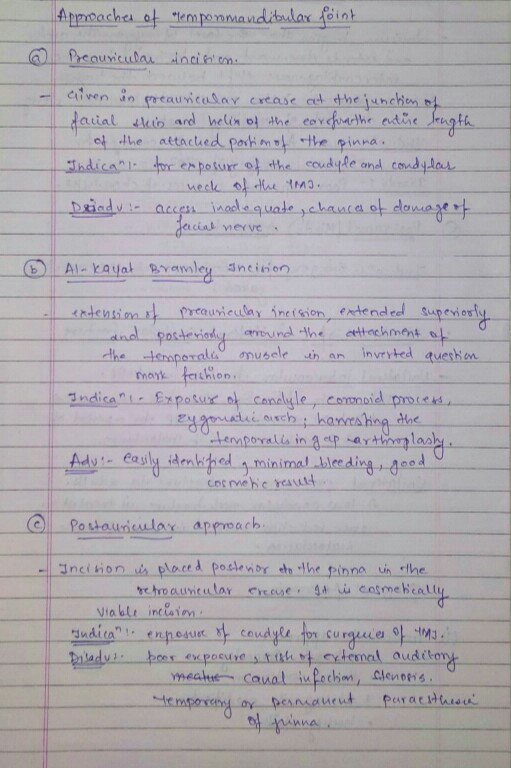 Approaches of temporomandibular joint
(a) Preauricular incision.
- Given in preauricular crease at the junction of
facial skin and helix of the ear the entire length
of the attached portion of the pinna.
Indicaⁿ:- for exposure of the condyle and condylar
neck of the TMJ.
Disadv:- access inadequate, chances of damage of
facial nerve.
(b) Al-Kayat Bramley Incision
- extension of preauricular incision, extended superiorly
and posteriorly around the attachment of
the temporalis muscle in an inverted question
mark fashion.
Indicaⁿ:- Exposure of condyle, coronoid process,
zygomatic arch; harvesting the
temporalis in gap arthroplasty.
Adv:- easily identified, minimal bleeding, good
cosmetic result
(c) Postauricular approach.
- Incision is placed posterior to the pinna in the
retroauricular crease. It is cosmetically
viable incision.
Indicaⁿ:- exposure of condyle for surgeries of TMJ.
Disadv:- poor exposure, risk of external auditory
meatus canal infection, stenosis.
temporary or permanent paraesthesia
of pinna.